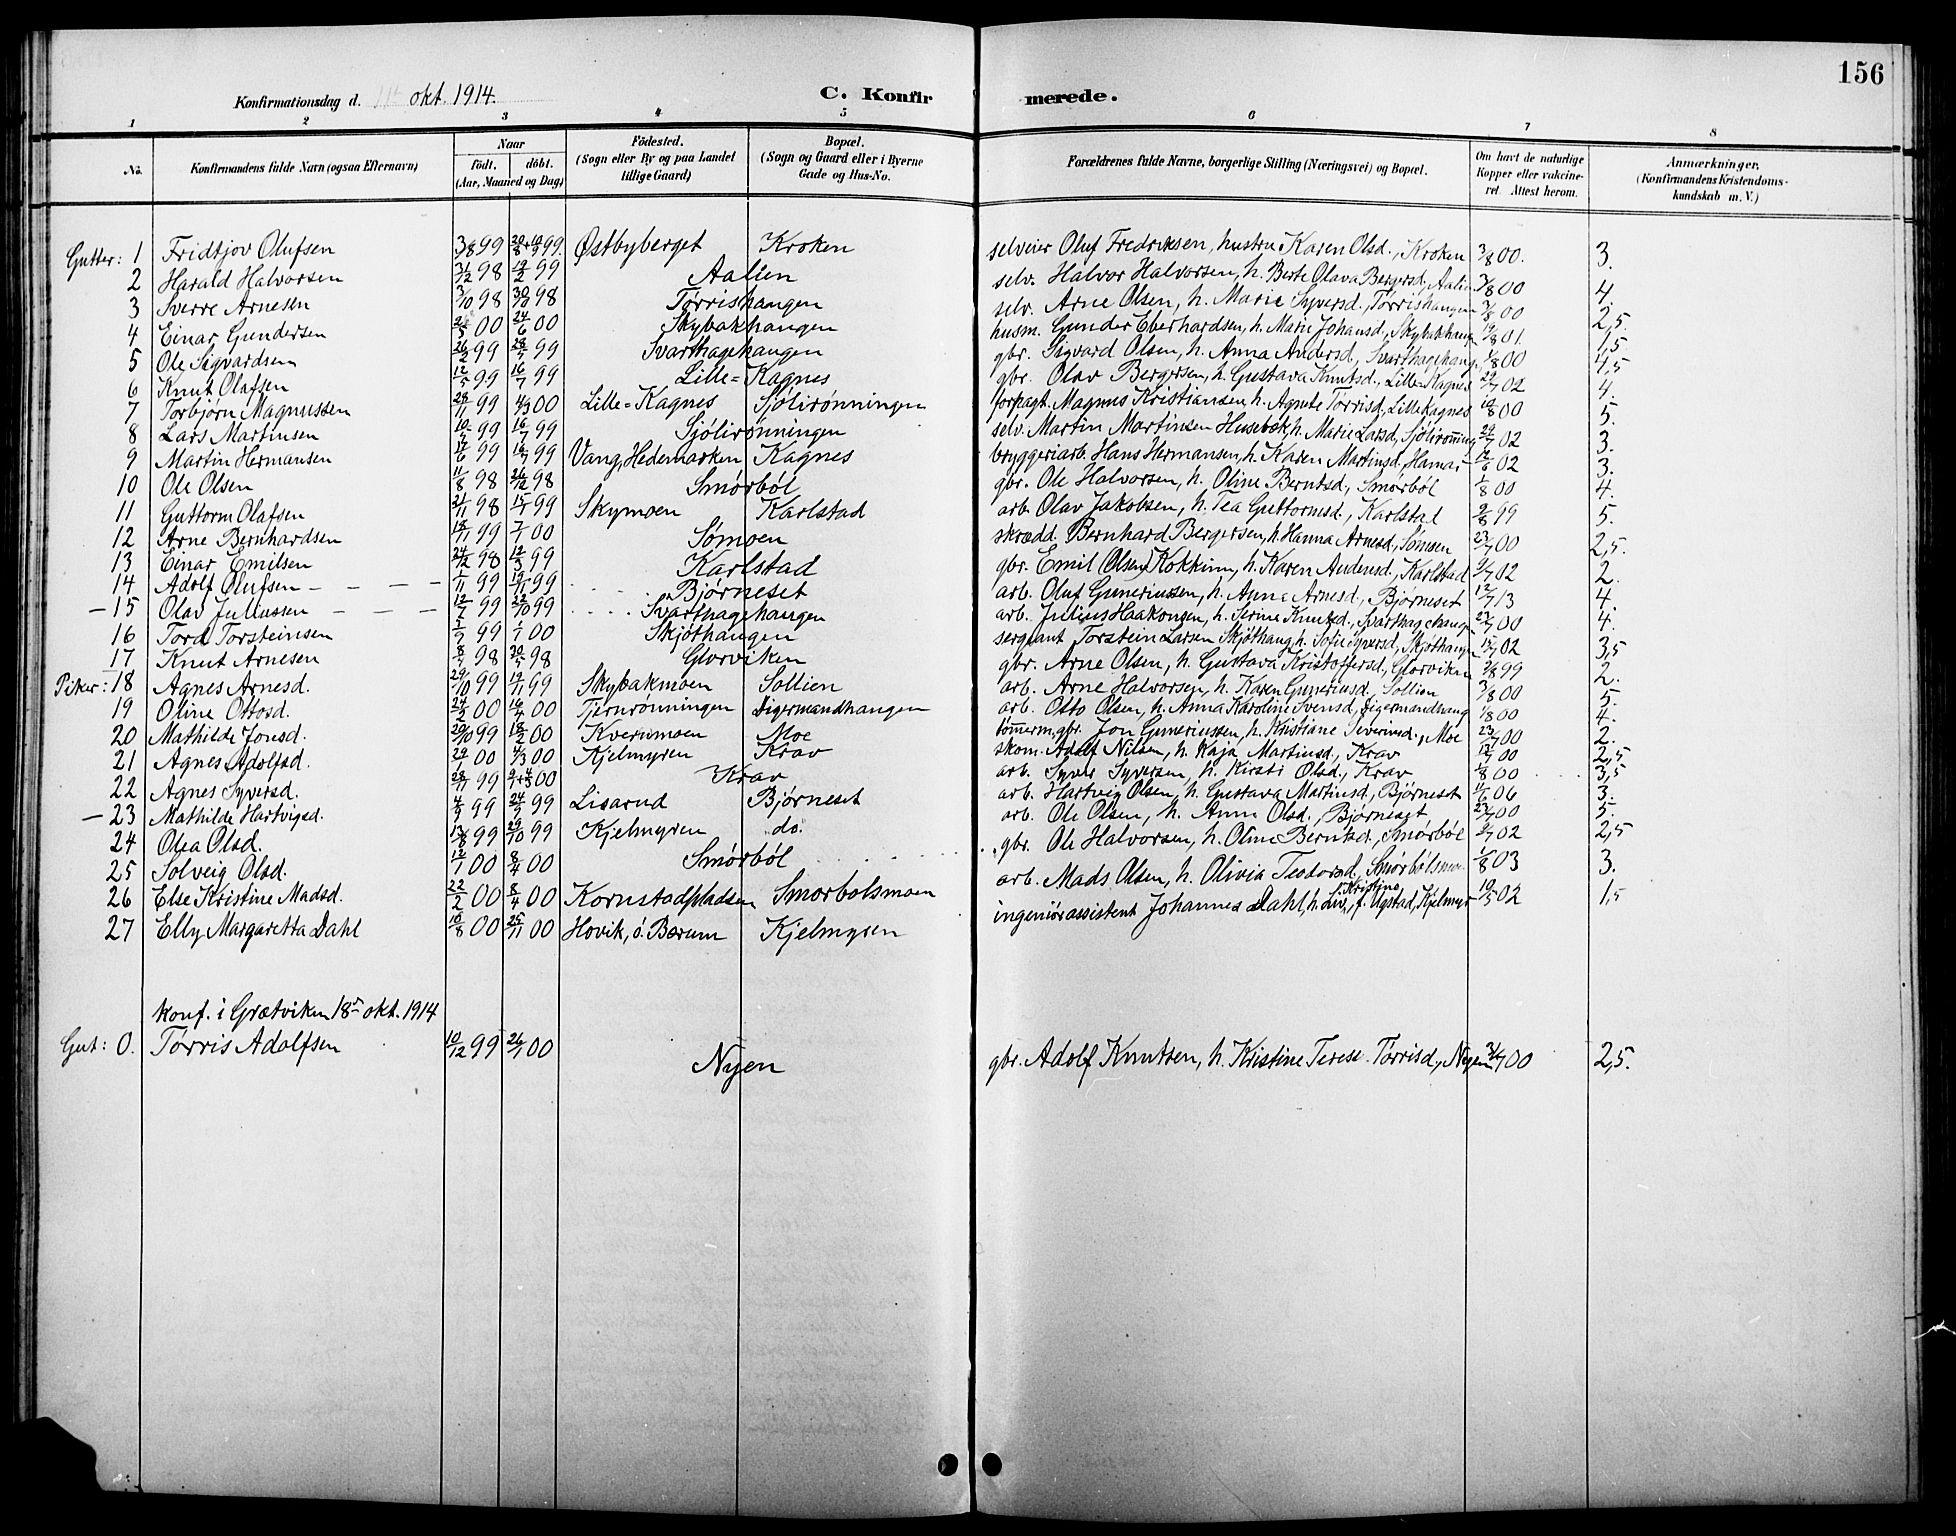 156
Konfirmationsdag d. 11te okt. 1914.
C. Konfirmerede.
1 2 3 4 5 6 7 8
No. | Konfirmandens fulde Navn (ogsaa Efternavn) | Naar födt. döbt. (Aar, Maaned og Dag) | Födested. (Sogn eller By og paa Landet tillige Gaard) | Bopæl. (Sogn og Gaard eller i Byerne Gade og Hus-No. | Forældrenes fulde Navne, borgerlige Stilling (Næringsvei) og Bopæl. | Om havt de naturlige Kopper eller vakcineret. Attest herom. | Anmærkninger. (Konfirmandens Kristendomskundskab m. V.)
Gutter: 1 Fridtjov Olufsen 3/8 99 Østbyberget Kroken selveier Oluf Fredriksen, hustru Karen Olsd., Kroken 3/8 00. 3.
2 Harald Halvorsen 31/12 98 19/2 99 Aalien selv. Halvor Halvorsen, h. Berte Olava Bergersd., Aalien 3/8 00 4.
3 Sverre Arnesen 3/10 98 98 Tørrishangen selv. Arne Olsen, h. Marie Syversd., Tørrishangen 3/8 00 2,5.
4 Einar Gundersen 00 24/6 00 Skybakhangen husm. Gunder Eberhardsen, h. Marie Johansd., Skybakhang 19/8 01. 1,5
5 Ole Sigvardsen 26/2 99 99 Svarthagehangen gbr. Sigvard Olsen, h. Anna Andersd., Svarthagehang. 1/8 00 4,5
6 Knut Olafsen 12/5 99 16/7 99 Lille=Kagnes gbr. Olav Bergersen, h. Gustava Knutsd., Lille=Kagnes 02 4.
7 Torbjørn Magnussen 99 4/3 00 Lille=Kagnes Sjölirønningen forpagt. Magnus Kristiansen h. Agnete Tørrisd., Lille Kagnes 19/8 00 5.
8 Lars Martinsen 99 16/7 99 Sjölirønningen selv. Martin Martinsen Husebæk, h. Marie Larsd., Sjölirønning 29/7 02 3.
9 Martin Hermansen 99 99 Vang, Hedemarken Kagnes bryggeriarb. Hans Hermansen, h. Karen Martinsd., Hamar 02 3.
10 Ole Olsen 11/8 98 26/12 98 Smörböl gbr. Ole Halvorsen, h. Oline Berntsd., Smörböl 1/8 00 4.
11 Guttorm Olafsen 21/11 98 15/1 99 Skymoen Karlstad arb. Olav Jakobsen, h. Tea Guttormsd., Karlstad 2/8 99 5.
12 Arne Bernhardsen 18/11 99 7/1 00 Sømoen skrædd. Bernhard Bergersen, h. Hanna Arnesd., Sømoen 23/7 00 2,5.
13 Einar Emilsen 24/12 98 12/3 99 Karlstad gbr. Emil (Olsen) Kokkinn, h. Karen Andersd., Karlstad 02 2.
14 Adolf Olufsen - - - 1/11 99 19/11 99 Bjørneset arb. Oluf Gunerinssen, h. Anna Arnesd., Bjørneset 13 4.
- 15 Olav Juliussen - - - 99 22/10 99 Svarthagehangen arb. Julius Haakonsen, h. Serine Knutsd., Svarthagehangen 00 4.
16 Tord Torsteinsen 99 1/1 00 Skjöthangen sergeant Torstein Larsen Skjöthaug, h. Sofie Syversd., Skjöthangen 02 3,5
17 Knut Arnesen 98 98 Glorviken gbr. Arne Olsen, h. Gustava Kristoffersd., Glorviken 99 2.
Piker: 18 Agnes Arnesd. 29/10 99 19/11 99 Skybakmoen Sollien arb. Arne Halvorsen, h. Karen Gunerinsd., Sollien 3/8 00 5.
19 Oline Ottosd. 24/2 00 16/4 00 Tjernrønningen Digermandhangen arb. Otto Olsen, h. Anna Karoline Svensd., Digermandhang 1/8 00 4.
20 Mathilde Jonsd. 29/10 99 18/2 00 Kvernmoen Moe tömerm., gbr. Jon Gunerinssen, h. Kristiane Severinsd., Moe 23/7 00 2.
21 Agnes Adolfsd. 29/1 00 4/3 00 Kjelmyren Krav skom. Adolf Nilsen, h. Kaja Martinsd., Krav 00 2,5
22 Agnes Syversd. 99 00 Krav arb. Syver Syversen, h. Kirsti Olsd., Krav 1/8 00 3,5
- 23 Mathilde Hartvigsd. 4/9 99 24/9 99 Lisarud Bjørneset arb. Hartvig Olsen, h. Gustava Martinsd., Bjørneset 06 3.
24 Olea Olsd. 13/8 99 29/10 99 Kjelmyren do. arb. Ole Olsen, h. Anne Olsd., Bjørneset 23/7 00 5.
25 Solveig Olsd. 12/1 00 8/4 00 Smörböl gbr. Ole Halvorsen, h. Oline Berntsd., Smörböl 02 2,5
26 Else Kristine Madsd. 22/2 00 8/4 00 Kornstadpladsen Smorbolsmoen arb. Mads Olsen, h. Olivia Teodorsd., Smörbölsmoe. 1/8 03 3.
27 Elly Margaretta Dahl 16/8 00 25/11 00 Hovik, ö. Bærum Kjelmyren ingeniørassistent Johannes Dahl, h. Liv Kristine, f. Ugstad, Kjelmyr 19/5 02 1,5
konf. i Grætviken 18de okt. 1914
Gut: 0. Tørris Adolfsen 10/12 99 26/1 00 Nyen gbr. Adolf Knutsen, h. Kristine Terese Tørrisd., Nyen 00 2,5.